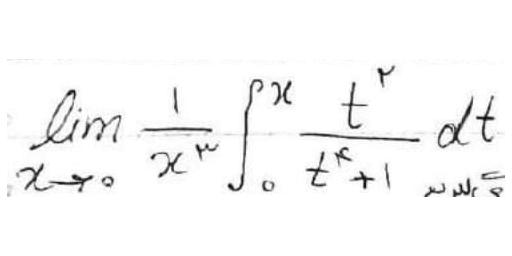 lim x→0 1/x^۳ ∫_0^x t^۲/(t^۴+1) dt